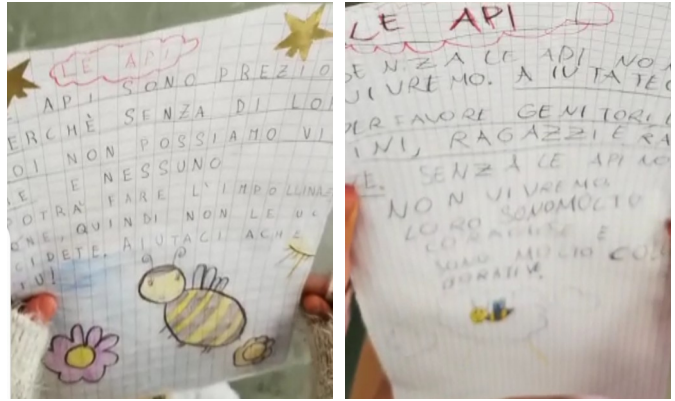 LE API
API SONO PREZIO
ERCHÈ SENZA DI LOR
OI NON POSSIAMO VI
E NESSUNO
POTRÀ FARE L'IMPOLLINAZ
ONE, QUINDI NON LE UC
CIDETE. AIUTACI ACHE
TU!
LE API
SENZA LE API NON
VIVREMO. AIUTATEC
PER FAVORE GENITORI
INI, RAGAZZI E RA
E. SENZA LE API NO
NON VIVREMO
LORO SONO MOLTO
CORAGIOSE E
SONO MOLTO COLL
BORATIVE.